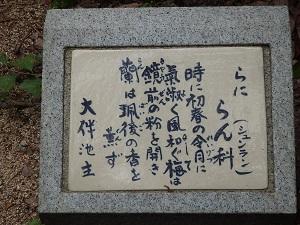 らに
らん科
(シュンラン)
時に初春の令月に
氣淑く風和ぐ梅は
鏡前の粉を開き
蘭は珮後の香を
薫ず
大伴池主